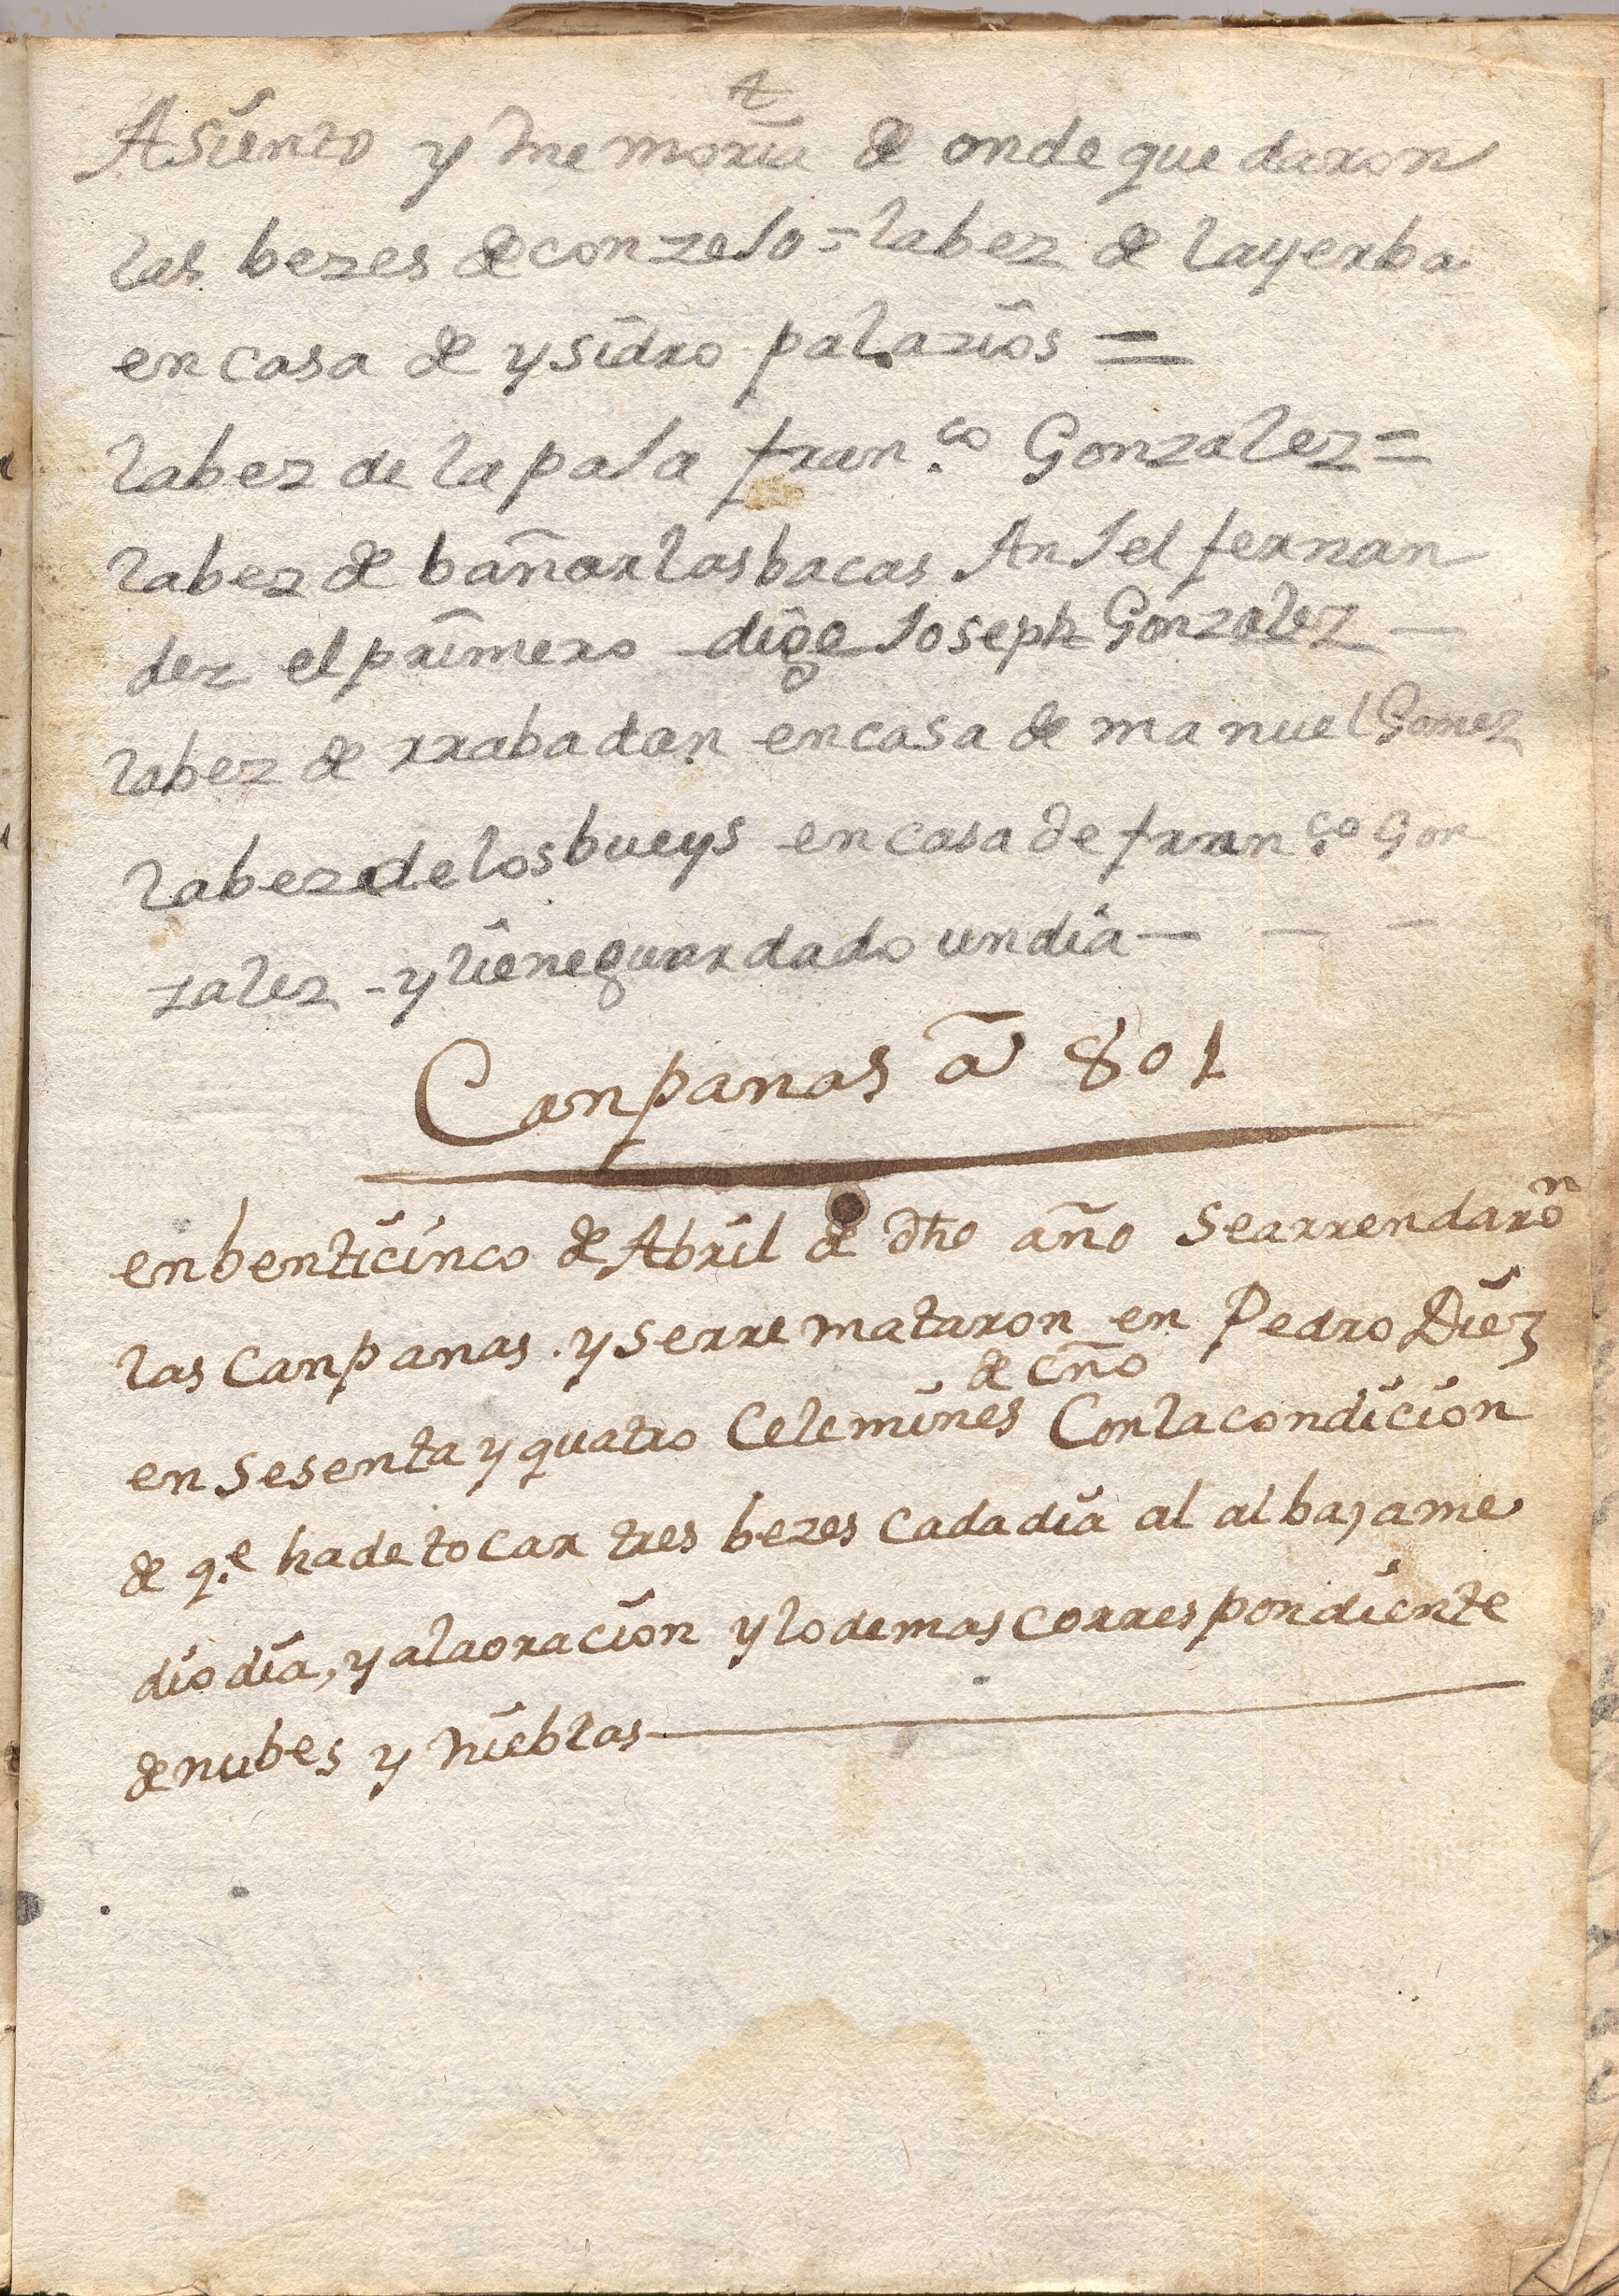 Asiento y memoria de onde quedaron
las bezes de conzeJo = la bez de la yerba
en casa de ysidro palazios =
la bez de la paJa fran.co Gonzalez =
la bez de bañar las bacas AnJel fernan
dez el primero dige Joseph Gonzalez —
la bez de rrabadan en casa de manuel Gomez
la bez de los bueys en casa de fran.co Gon
zalez - y tiene guardado un dia — — —
Canpanas a 801
en benticinco de Abril de dho año Se arrendaron
las Canpanas. y se rre mataron en Pedro Diez
de cño
en Sesenta y quatro Celemines Con la condicion
de q.e ha de tocar tres bezes Cada dia al alba, a me
dio dia, y a la oracion y lo demas correspondiente
de nubes y Nieblas —